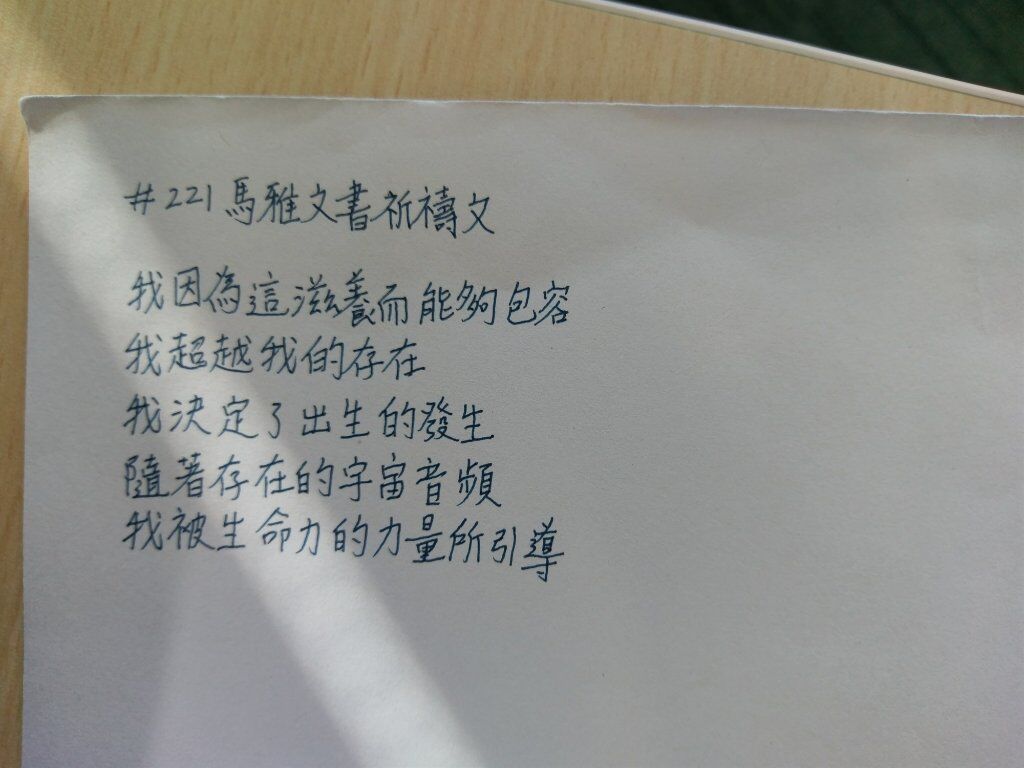 #221馬雅文書祈禱文
我因為這滋養而能夠包容
我超越我的存在
我決定了出生的發生
隨著存在的宇宙音頻
我被生命力的力量所引導